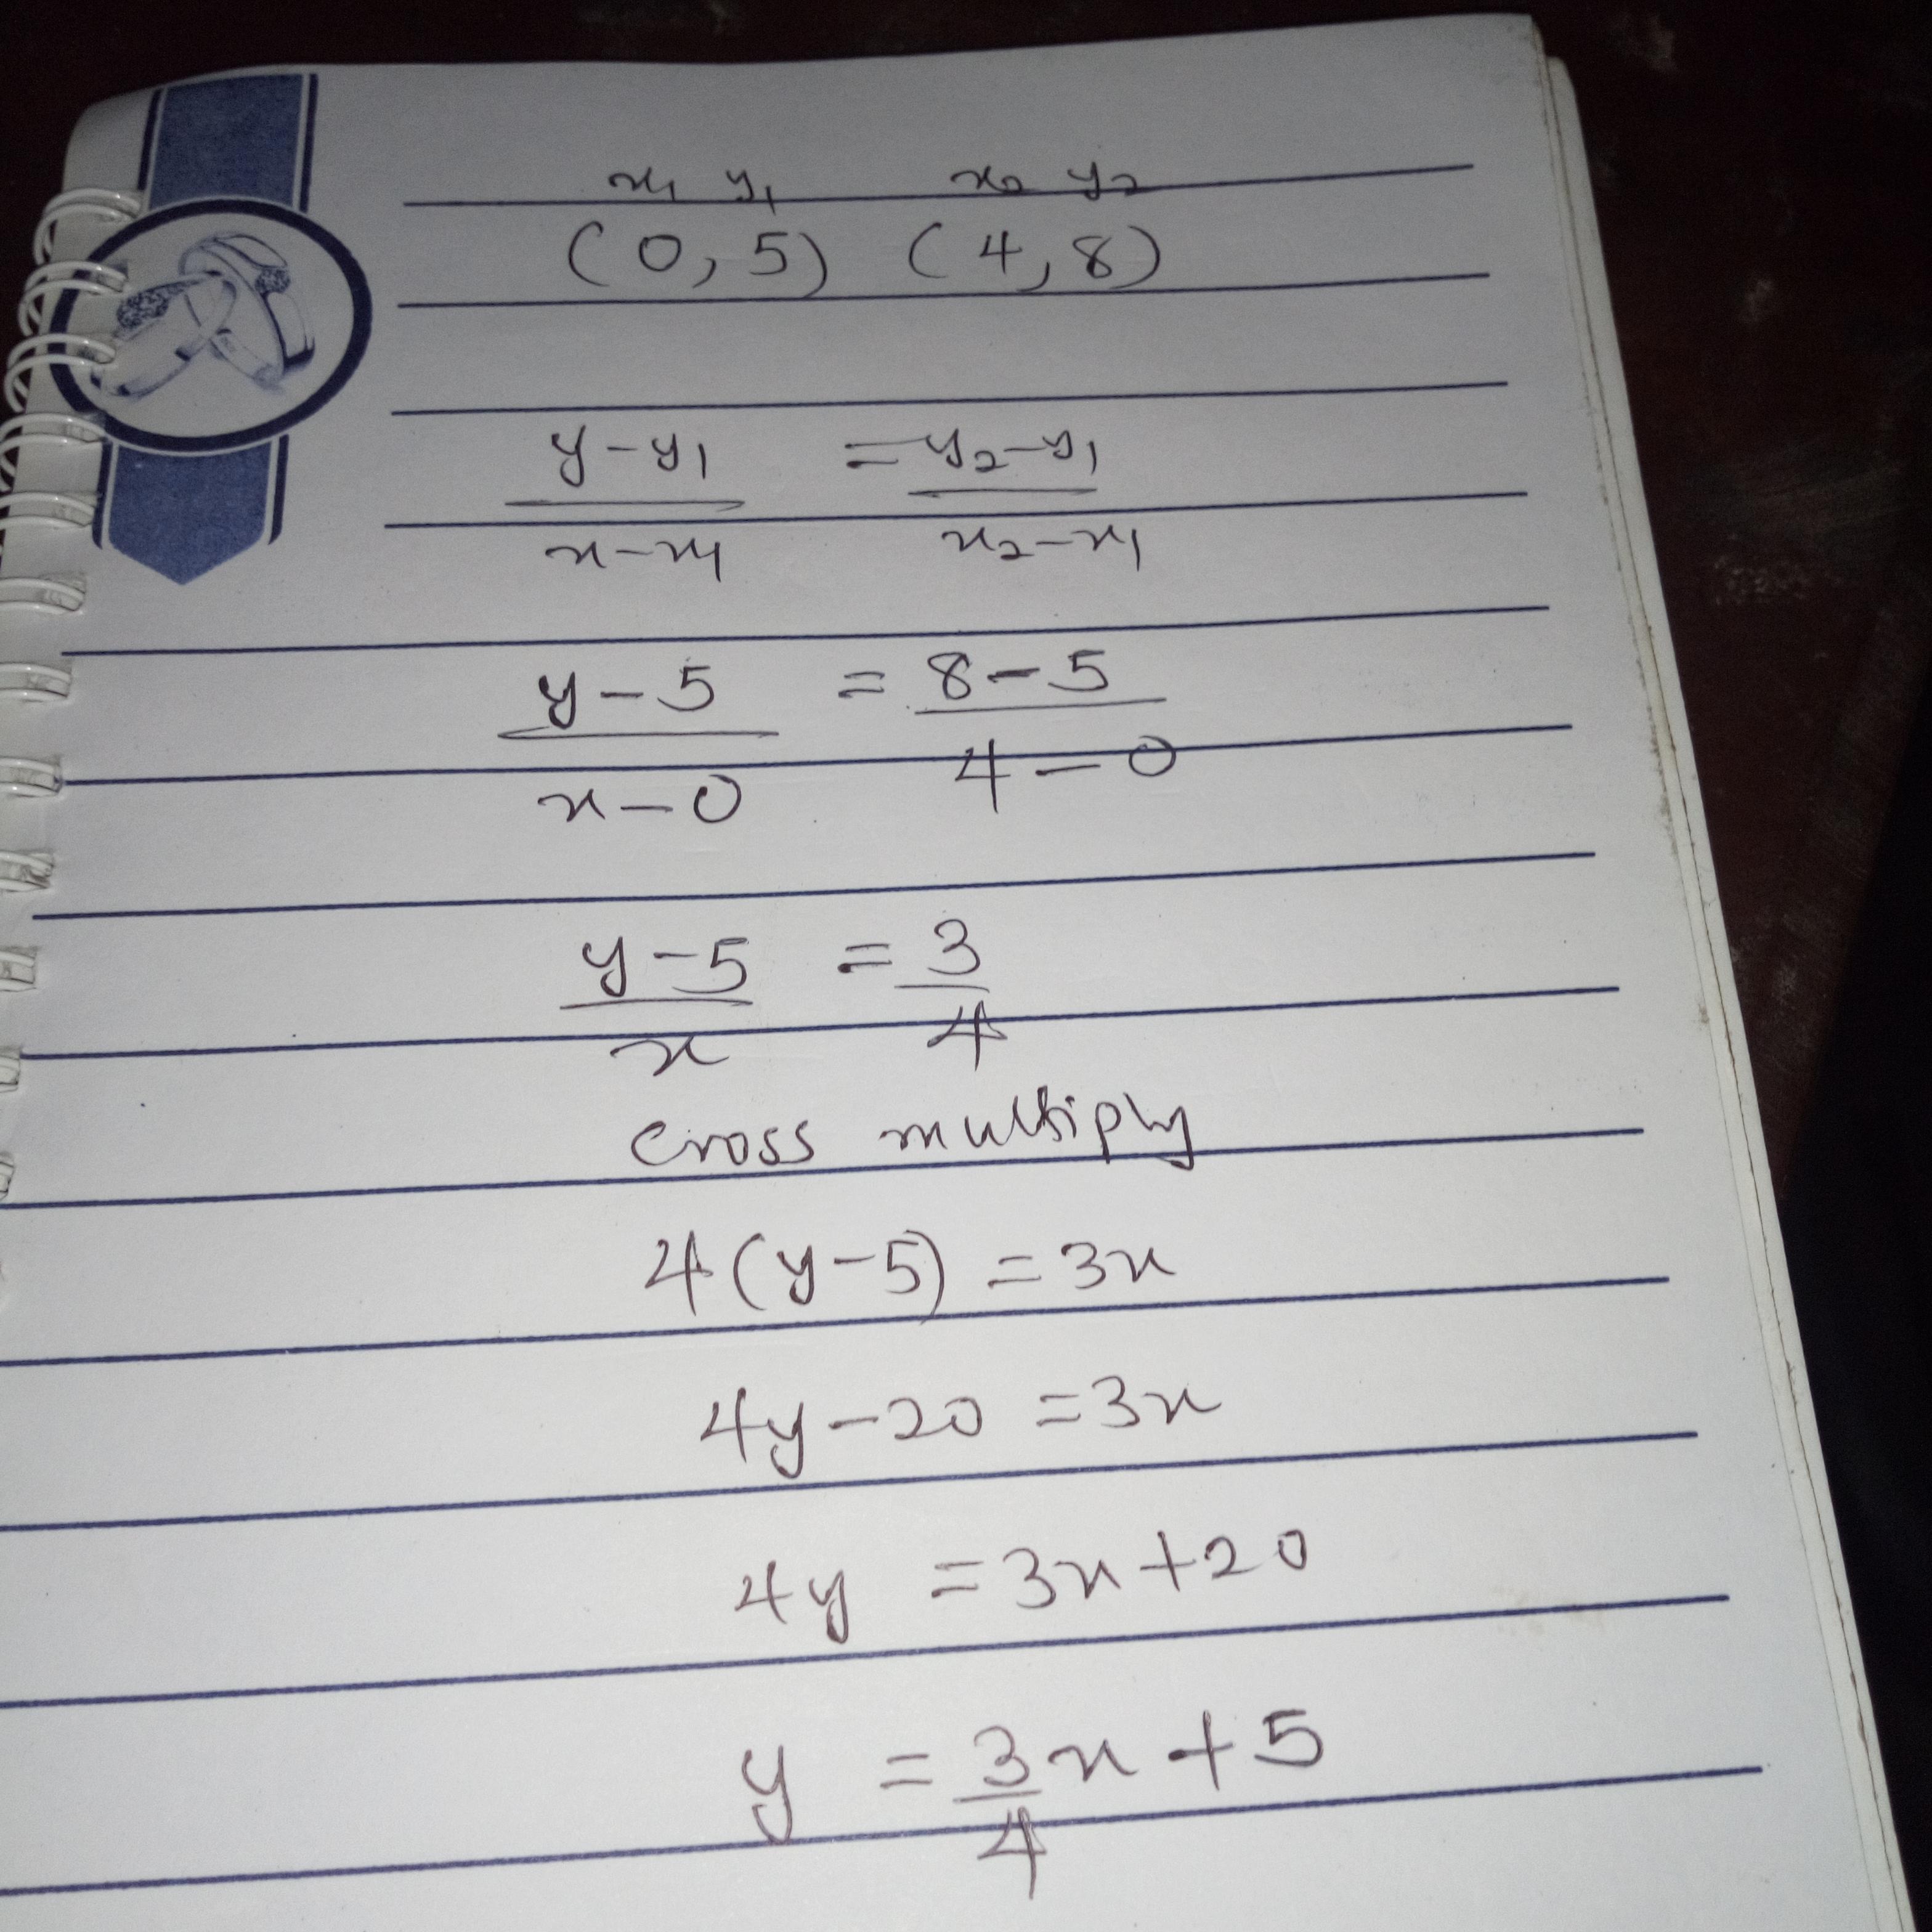 x₁ y₁ x₂ y₂
(0, 5) (4, 8)
y - y₁ = y₂ - y₁
x - x₁ x₂ - x₁
y - 5 = 8 - 5
x - 0 4 - 0
y - 5 = 3
x 4
cross multiply
4(y - 5) = 3x
4y - 20 = 3x
4y = 3x + 20
y = 3x + 5
4